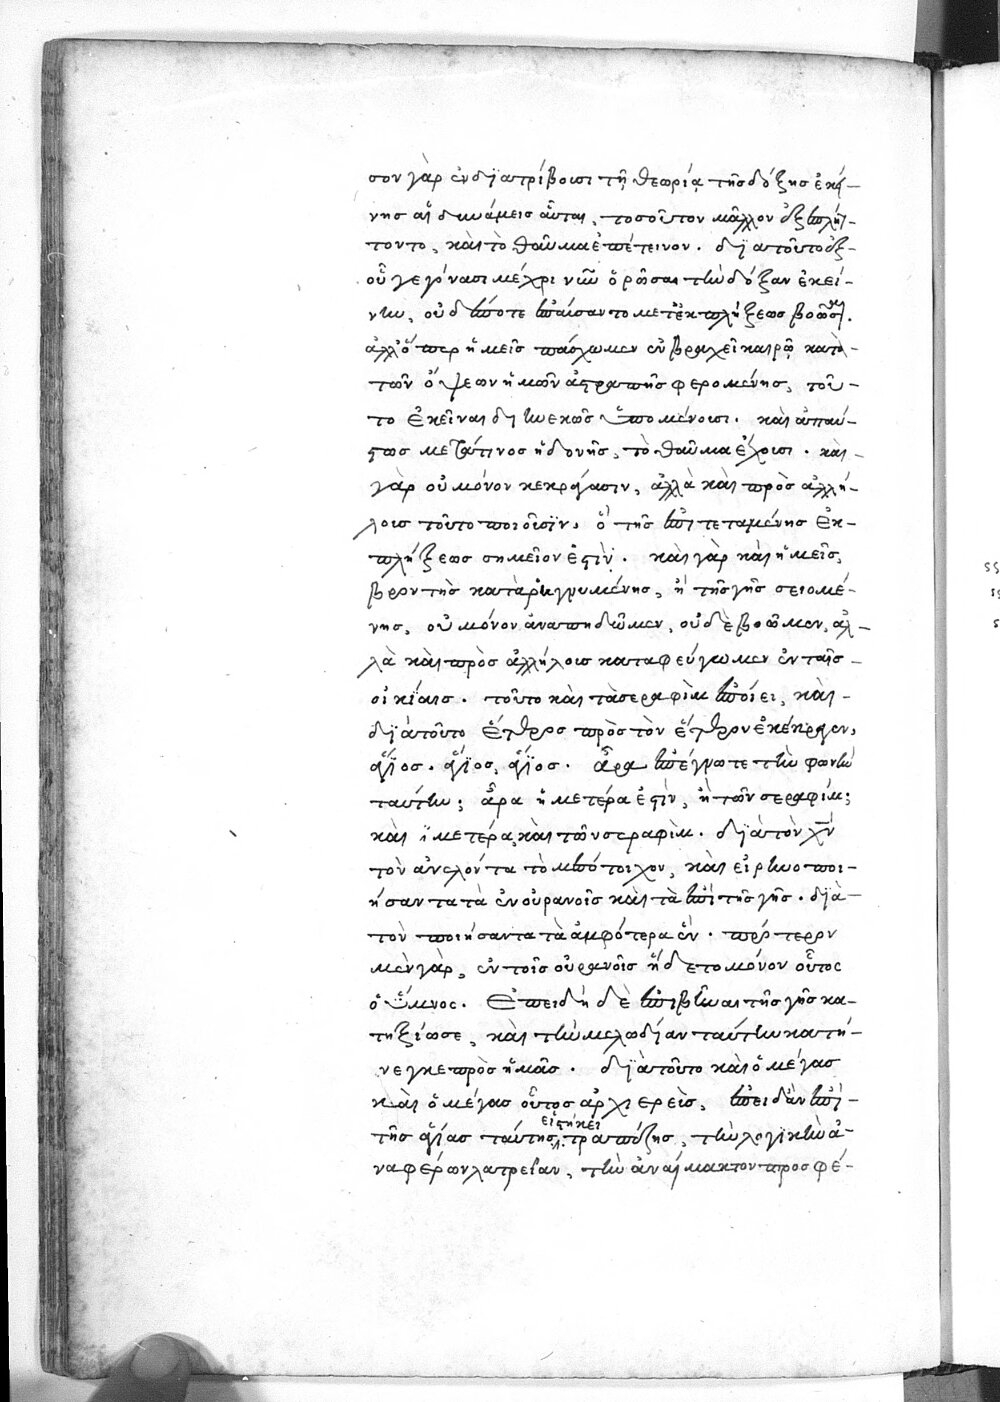 σον γὰρ ἐνδϊατρίβουσι τῇ θεωρίᾳ τῆς δόξης ἐκεί-
νης αἱ δυνάμεις αὗται, τοσοῦτον μᾶλλον ἐξεπλήτ-
τοντο, καὶ τὸ θαῦμα ἐπέτεινον. δϊατοῦτο ἐξ-
οὗ γεγόνασι μέχρι νῦν ὁρῶσαι τὴν δόξαν ἐκεί-
νην, οὐδέποτε ἐπαύσαντο μετ' ἐκπλήξεως βοῶσαι.
ἀλλ' ὅπερ ἡμεῖς πάσχωμεν ἐν βραχεῖ καιρῷ κατὰ
τῶν ὄψεων ἡμῶν ἀστραπῆς φερομένης, τοῦ-
το ἐκεῖναι διηνεκῶς ὑπομένουσι. καὶ ἀπαύ-
στως μετά τινος ἡδονῆς, τὸ θαῦμα ἔχουσι. καὶ
γὰρ οὐ μόνον κεκράγασιν, ἀλλὰ καὶ πρὸς ἀλλή-
λους τοῦτο ποιοῦσϊν, ὃ τῆς ἐπιτεταμένης ἐκ-
πλήξεως σημεῖον ἐστὶν. καὶ γὰρ καὶ ἡμεῖς,
βροντῆς καταρῥηγνυμένης, ἢ τῆς γῆς σειομέ-
νης, οὐ μόνον ἀναπηδῶμεν, οὐδὲ βοῶμεν, ἀλ-
λὰ καὶ πρὸς ἀλλήλους καταφεύγωμεν ἐν ταῖς
οἰκίαις. τοῦτο καὶ τὰ σεραφὶμ ἐποίει, καὶ
δϊατοῦτο ἕτερος πρὸς τὸν ἕτερον ἐκέκραγεν,
ἅγϊος. ἅγϊος, ἅγϊος. ἆρα ἐπέγνωτε τὴν φωνὴν
ταύτην; ἆρα ἡμετέρα ἐστὶν, ἢ τῶν σεραφίμ;
καὶ ἡμετέρα, καὶ τῶν σεραφὶμ. δϊὰ τὸν χν
τὸν ἀνελόντα τὸ μεσότοιχον, καὶ εἰρηνοποι-
ήσαντα τὰ ἐν οὐρανοῖς καὶ τὰ ἐπὶ τῆς γῆς. δϊὰ
τὸν ποιήσαντα τὰ ἀμφότερα ἕν. πρότερον
μὲν γὰρ, ἐν τοῖς οὐρανοῖς ᾔδετο μόνον οὗτος
ὁ ὕμνος. ἐπειδὴ δὲ ἐπιβῆναι τῆς γῆς κα-
τηξίωσε, καὶ τὴν μελωδίαν ταύτην κατή-
νεγκε πρὸς ἡμᾶς. δϊατοῦτο καὶ ὁ μέγας
καὶ ὁ μέγας οὗτος ἀρχιερεὺς, ἐπειδὰν ἐπὶ
εἱστήκει
τῆς ἁγίας ταύτης τραπέζης, τὴν λογϊκὴν ἀ-
ναφέρων λατρείαν, τὴν ἀναίμακτον προσφέ-